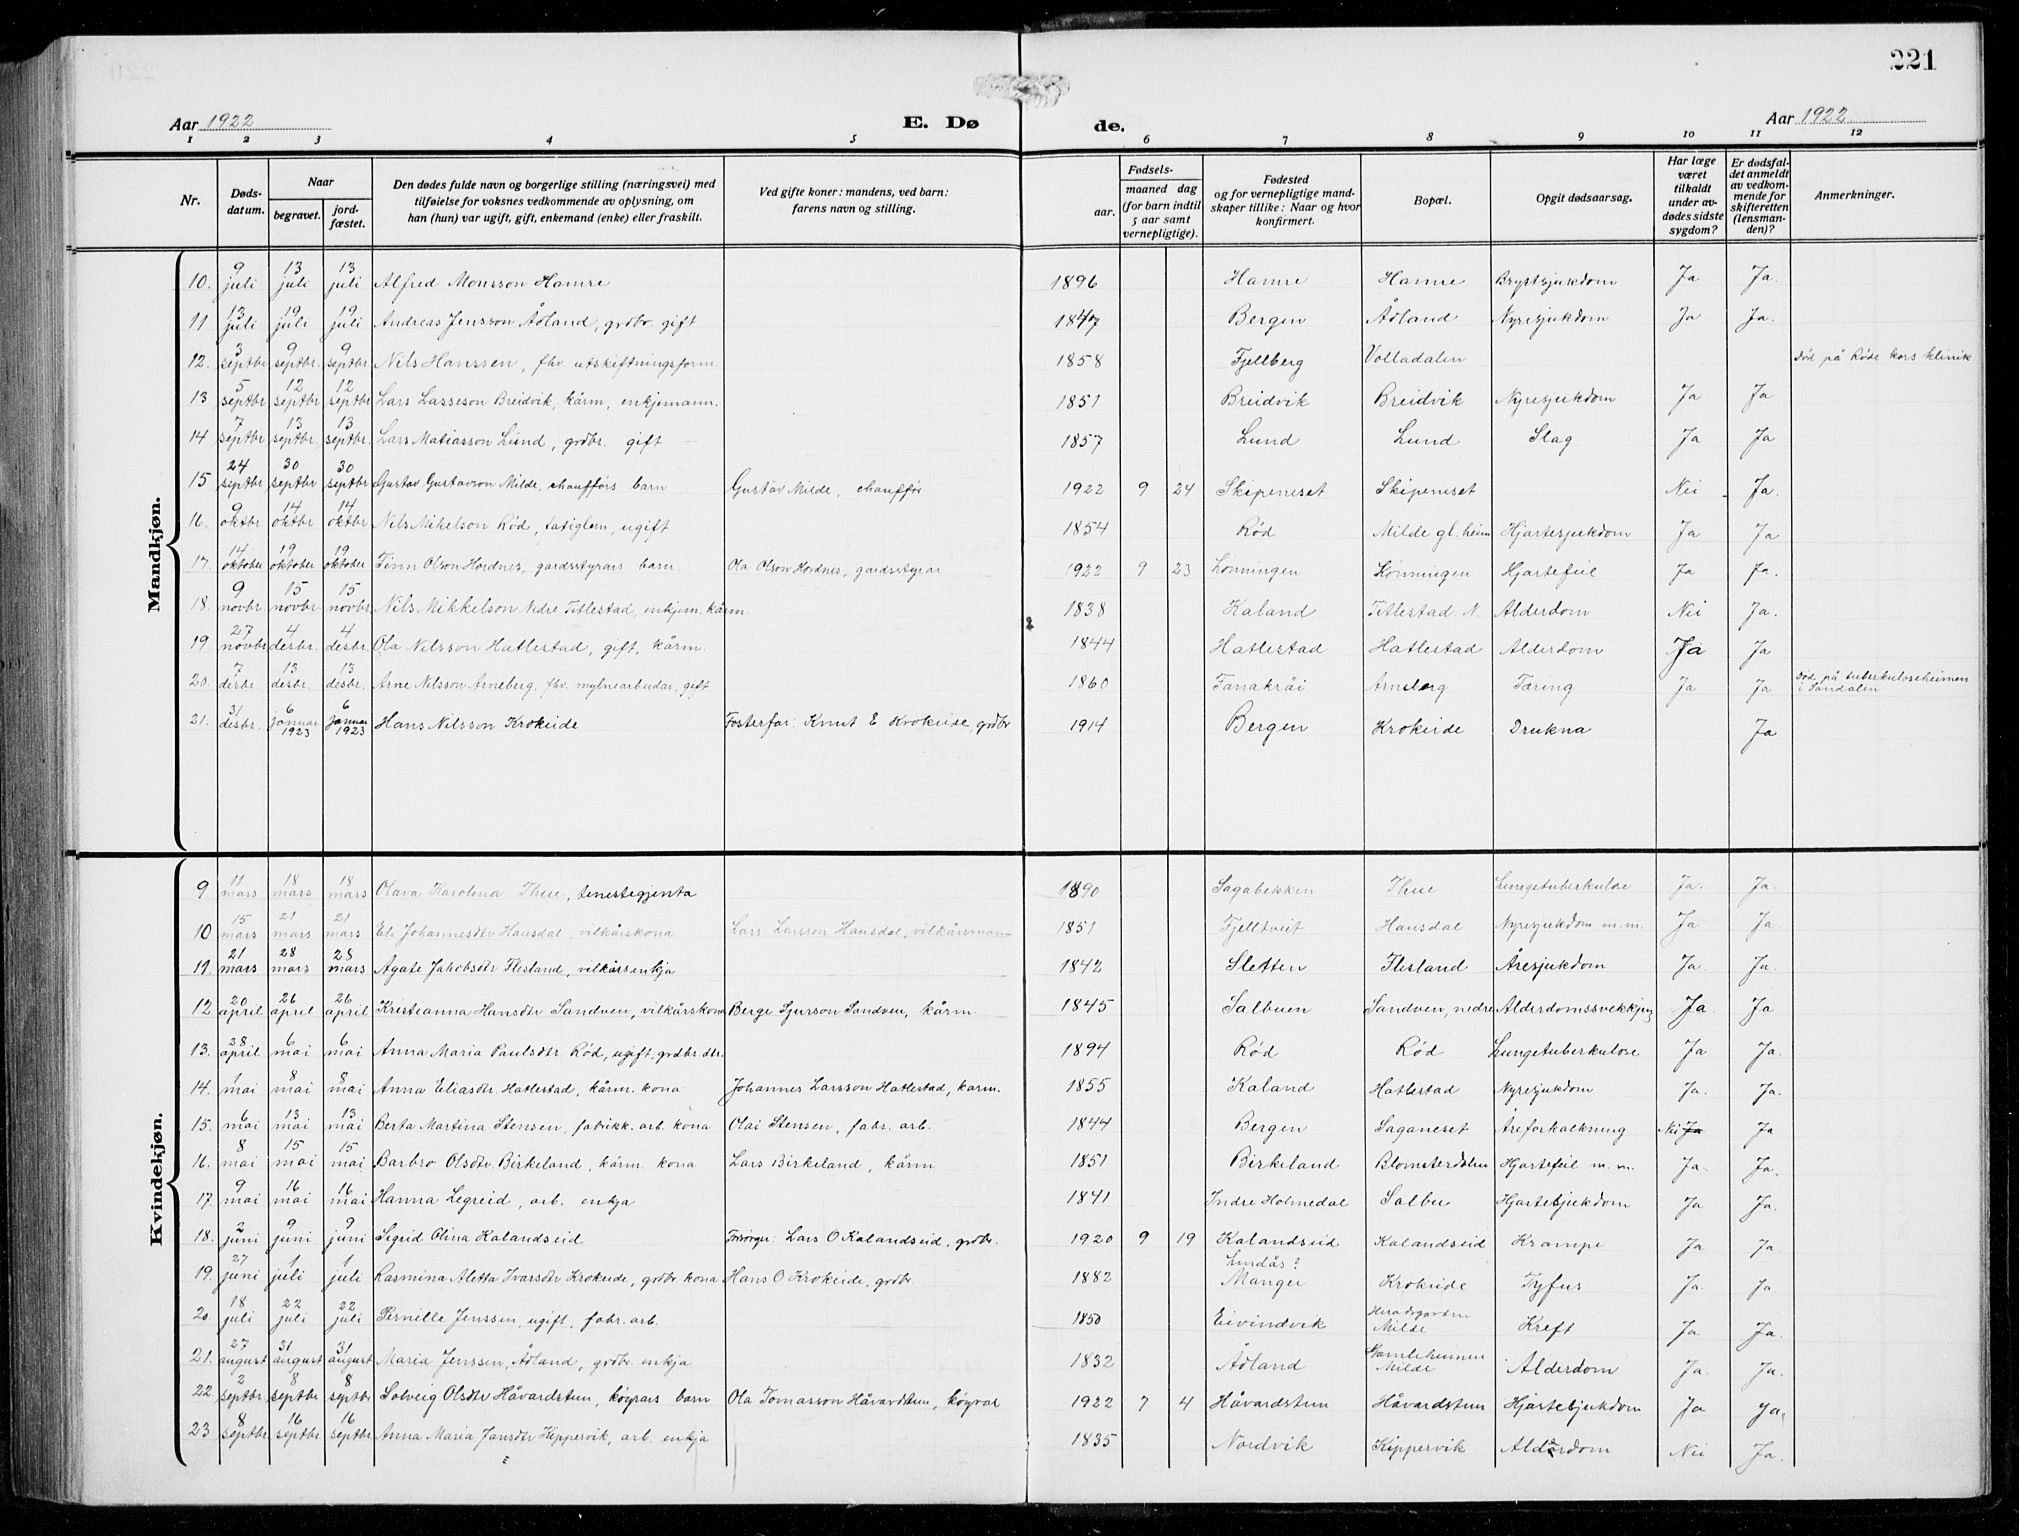 221
Aar 1922 E. Dø de. Aar 1922
1 2 3 4 5 6 7 8 9 10 11 12
Nr. Døds-datum. Naar begravet. jord-fæstet. Den dødes fulde navn og borgerlige stilling (næringsvei) med tilføielse for voksnes vedkommende av oplysning, om han (hun) var ugift, gift, enkemand (enke) eller fraskilt. Ved gifte koner: mandens, ved barn: farens navn og stilling. Fødsels- aar. maaned dag (for barn indtil 5 aar samt vernepligtige). Fødested og for vernepligtige mand-skaper tillike: Naar og hvor konfirmert. Bopæl. Opgit dødsaarsag. Har læge været tilkaldt under av-dødes sidste sygdom? Er dødsfal-det anmeldt av vedkom-mende for skifteretten (lensman-den)? Anmerkninger.
Mandkjøn.
10. 9 juli 13 juli 13 juli Alfred Monsson Hamre 1896 Hamre Hamre Brystsjukdom Ja Ja.
11 13 juli 19 juli 19 juli Andreas Jensson Ådland, grdbr. gift 1847 Bergen Ådland Nyresjukdom Ja Ja.
12. 3 septbr 9 septbr. 9 septbr. Nils Hanssen, fhv. utskiftningsform. 1858 Fjellberg Volladalen Død på Røde kors klinik
13 5 septbr 12 septbr 12 septbr Lars Lasseson Breidvik, kårm, enkjemann. 1851 Breidvik Breidvik Nyresjukdom Ja Ja
14 7 septbr 13 septbr. 13 septbr. Lars Matiasson Lund, grdbr. gift 1857 Lund Lund Slag Ja Ja
15 24 septbr 30 septbr 30 septbr Gustav Gustavson Milde, chaufførs barn Gustav Milde, chauffør 1922 9 24 Skipeneset Skipeneset Nei Ja.
16. 9 oktbr 14 oktbr 14 oktbr Nils Mikelson Rød, fatiglem, ugift 1854 Rød Milde gl. heim Hjartesjukdom Ja Ja
17. 14 oktober 19 oktober 19 oktober Finn Olson Hordnes, gardsstyrars barn. Ola Olson Hordnes, gardsstyrar 1922 9 23 Lønningen Lønningen Hjartefeil Ja Ja.
18. 9 novbr 15 novbr 15 novbr Nils Mikkelson Nedre Titlestad, enkjem. kårm. 1838 Kaland Titlestad N. Alderdom Nei Ja.
19. 27 novbr 4 desbr. 4 desbr. Ola Nilsson Hatlestad, gift, kårm. 1844 Hatlestad Hatlestad Alderdom Ja Ja
20. 7 desbr. 13 desbr. 13 desbr. Arne Nilsson Arneberg. fhv. mylnearbeidar, gift 1860 Fanakråi Arneberg Tæring Ja Ja Død på tuberkuloseheimen i Sandalen
21. 31 desbr. 6 januar 1923 6 januar 1923 Hans Nilsson Krokeide Fosterfar: Knut E Krokeide, grdbr 1914 Bergen Krokeide Drukna Ja
Kvindekjøn.
9 11 mars 18 mars 18 mars Olava Karolina Thue, tenestegjenta 1890 Sagabekken Thue Lungetuberkulose Ja. Ja.
10 15 mars 21 mars 21 mars Eli Johannesdtr Hausdal, vilkårskona Lars Larsson Hausdal, vilkårsmann 1851 Fjelltveit Hausdal Nyresjukdom m.m. Ja Ja.
11. 21 mars 28 mars 28 mars Agate Jakobsdtr Flesland, vilkårsenkja 1842 Sletten Flesland Åresjukdom Ja. Ja.
12. 20 april 26 april 26 april Kristianna Hansdtr Sandven, vilkårskona Berge Sjurson Sandven, kårm. 1845 Salbuen Sandven, nedre Alderdomssvekkjing Ja. Ja
13. 28 april 6 mai 6 mai Anna Maria Paulsdtr Rød, ugift, grdbr dtr. 1894 Rød Rød Lungetuberkulose Ja Ja.
14. 1 mai 8 mai 8 mai Anna Eliasdtr Hatlestad, kårm. kona Johannes Larsson Hatlestad, karm. 1855 Kaland Hatlestad Nyresjukdom Ja. Ja.
15. 6 mai 13 mai 13 mai Berta Martina Stensen, fabrikk. arb. kona Olai Stensen, fabr. arb. 1844 Bergen Saganeset Åreforkalkning Nei Ja Ja
16. 8 mai 15 mai 15 mai Barbro Olsdtr. Birkeland, kårm. kona Lars Birkeland, kårm 1851 Birkeland Blomsterdalen Hjartefeil m. m. Ja. Ja.
17. 9 mai 16 mai 16 mai Hanna Legreid, arb. enkja 1841 Indre Holmedal Salbu Hjartesjukdom Ja Ja.
18. 2 juni 9 juni 9 juni Sigrid Olina Kalandseid Forsørger: Lars O Kalandseid, grdbr. 1920 9 19 Kalandseid Kalandseid Krampe Ja Ja.
19. 27 juni 1 juli 1 juli Rasmina Aletta Ivarsdtr Krokeide, grdbr kona Hans O Krokeide, grdbr. 1882 Lindås? Manger Krokeide Tyfus Ja. Ja
20. 18 juli 22 juli 22 juli Pernille Jenssen, ugift, fabr. arb. 1850 Eivindvik Heradsgarden Milde Kreft Ja Ja.
21. 27 august 31 august 31 august Maria Jenssen, Ådland, grdbr. enkja 1832 Ådland Gamleheimen Milde Alderdom Ja. Ja.
22. 2 septbr. 8 septbr 8 septbr Solveig Olsdtr Håvardstun, køyrars barn Ola Tomasson Håvardstun, køyrar 1922 7 4 Håvardstun Håvardstun Hjartesjukdom Ja Ja.
23 8 septbr. 16 septbr 16 septbr Anna Maria Jansdtr Kippervik, arb. enkja 1835 Nordvik Kippervik Alderdom Nei Ja.